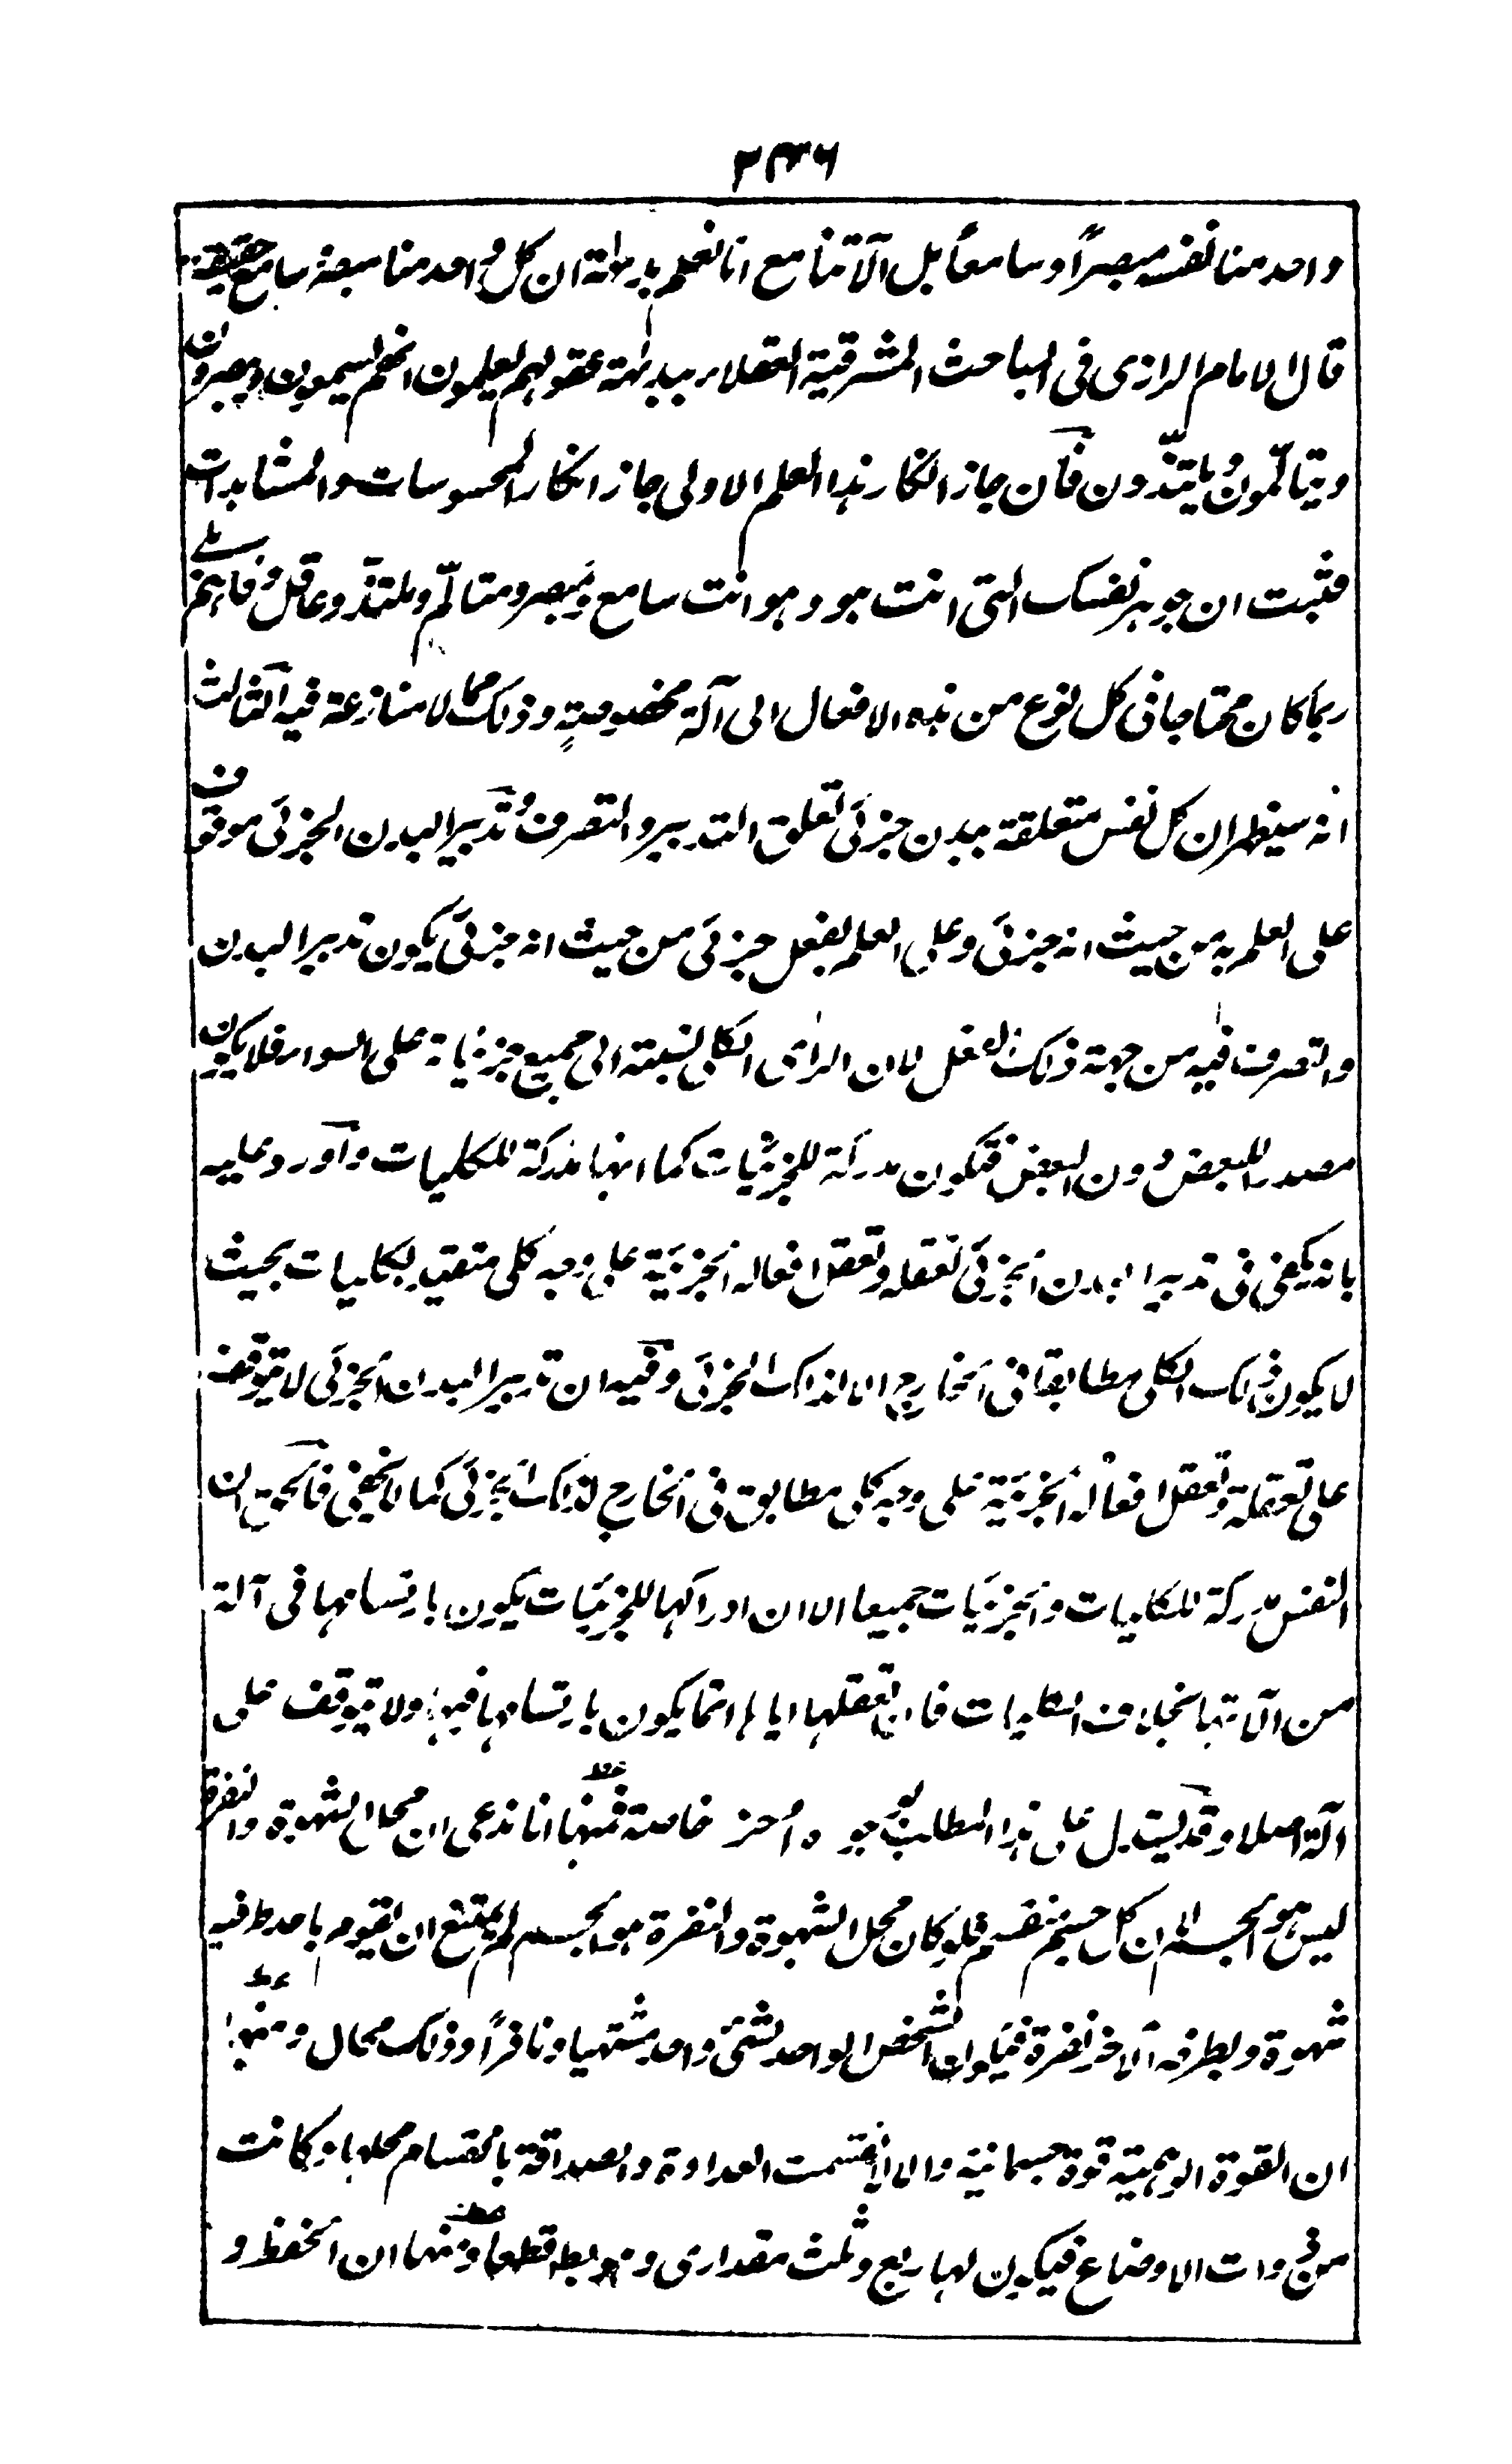 ٢٣٦
واحد منا نفسه مبصراً وسامعاً بل آلاتنا مع انا نعلم بداهة ان كل واحد منا مبصر سامع حقيقة
قال الامام الرازى فى المباحث المشرقية العقلاء ببداهة عقولهم يعلمون انهم يسمعون ويبصرون
ويتألمون ويلتذون فان جاز انكار هذا العلم الاولى جاز انكار المحسوسات والمشاهدات
فثبت ان جوهر نفسك التى انت هو وهو انت سامع ومبصر ومتألم وملتذ وعاقل وفاهم
ربما كان محتاجا فى كل نوع من هذه الافعال الى آلة مخصوصة وذلك مما لا منازعة فيه الثالث
انه سيظهر ان كل نفس متعلقة ببدن جزئى تعلق التدبير والتصرف وتدبير البدن الجزئى موقوف
على العلم به من حيث انه جزئى وعلى العلم بفعل جزئى من حيث انه جزئى يكون تدبير البدن
والتصرف فيه من جهة ذلك الفعل لان الراى الكلى نسبته الى جميع جزئياته على السواء فلا يكون
مصدر للبعض دون البعض فتكون مدركة للجزئيات كما انها مدركة للكليات واورد عليه
بانه يكفى فى تدبير البدن الجزئى تعقله وتعقل افعاله الجزئية على وجه كلى متقيد بكليات بحيث
لا يكون ذلك الكلى مطابقا فى الخارج الا لذاك الجزئى وفيه ان تدبير البدن الجزئى لا يتوقف
على تعقله وتعقل افعاله الجزئية على وجه كلى مطابق فى الخارج لذلك الجزئى كما لا يخفى فالحق ان
النفس مدركة للكليات والجزئيات جميعا الا ان ادراكها للجزئيات يكون بارتسامها فى آلة
من آلاتها بخلاف الكليات فان تعقلها اياها انما يكون بارتسامها فيها ولا يتوقف على
آلة اصلا وقد يستدل على هذا المطلب بوجوه اخر خاصة فمنها انا ندعى ان محل الشهوة والنفرة
ليس هو الجسم لان كل جسم منقسم فلو كان محل الشهوة والنفرة هو الجسم لم يمتنع ان يقوم باحد طرفيه
شهوة وبطرفه الآخر نفرة فيكون الشخص الواحد لشئ واحد مشتهيا ونافراً وذلك محال ومنها
ان القوة الوهمية قوة جسمانية والا لانقسمت العداوة والصداقة بانقسام محلها وكانت
من ذوات الاوضاع فيكون لها ربع وثلث مقدارى وهو باطل قطعا ومنها ان الحفظ و